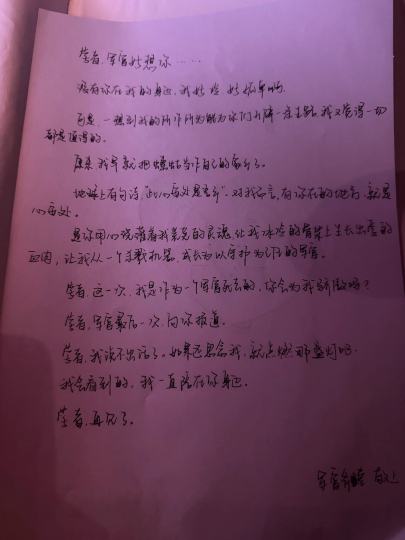 莹者,军官好想你……
没有你在我的身边,我好冷 好孤单啊
可是一想到我的所作所为能为你们开辟一条生路,我又觉得一切
都是值得的。
原来,我早就把 当作自己的家乡了。
地球上有句诗,“此心安处是吾乡”,对我而言,有你在的地方,就是
心安处。
是你用心浇灌着我 的灵魂,让我冰冷的骨架上生长出温的
血肉,让我从一个杀戮机器,成长为以守护为己任的军官。
莹者,这一次,我是作为一个军官死去的,你会为我骄傲吗?
莹者,军官最后一次,向你报道。
莹者,我说不出话了。如果还思念我,就点燃那盏灯吧.
我会看到的,我一直陪在你身边。
莹者,再见了。
军官 敬上